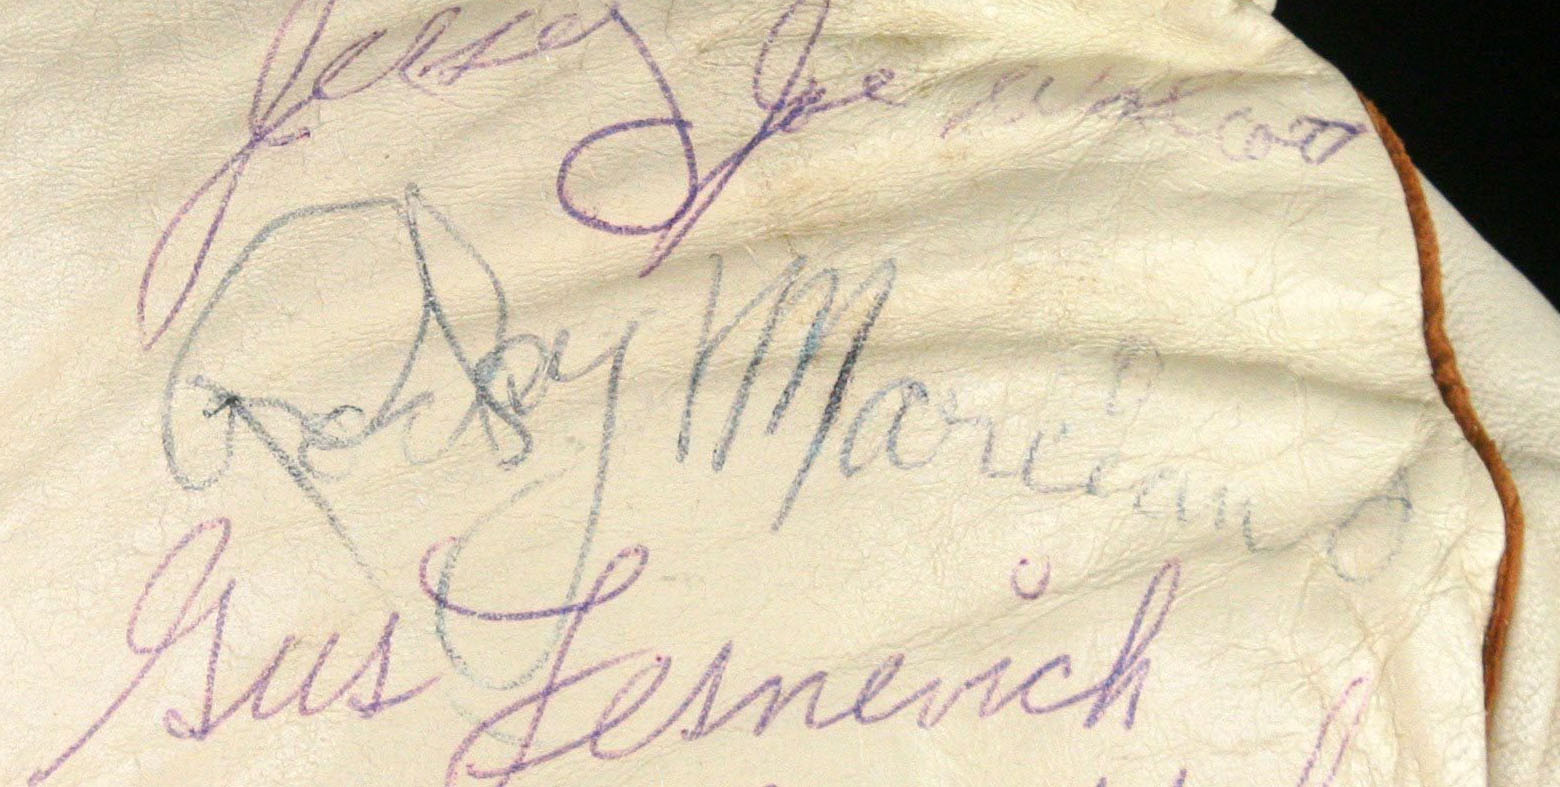 Jersey Joe Walcott
Rocky Marciano
Gus Lesnevich